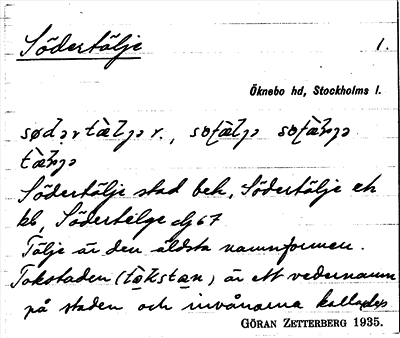 Södertälje 1.
Öknebo hd, Stockholms l.
sød̥ərtæ̀ljə r., søtæ̀ljə
tæ̀ljə
Södertälje stad bek, Södertälje ek
kb, Södertelge dj 67
Tälje är den äldsta namnformen.
Tokstaden (tòkstan) är ett vedernamn
på staden och invånarna kallades
GÖRAN ZETTERBERG 1935.